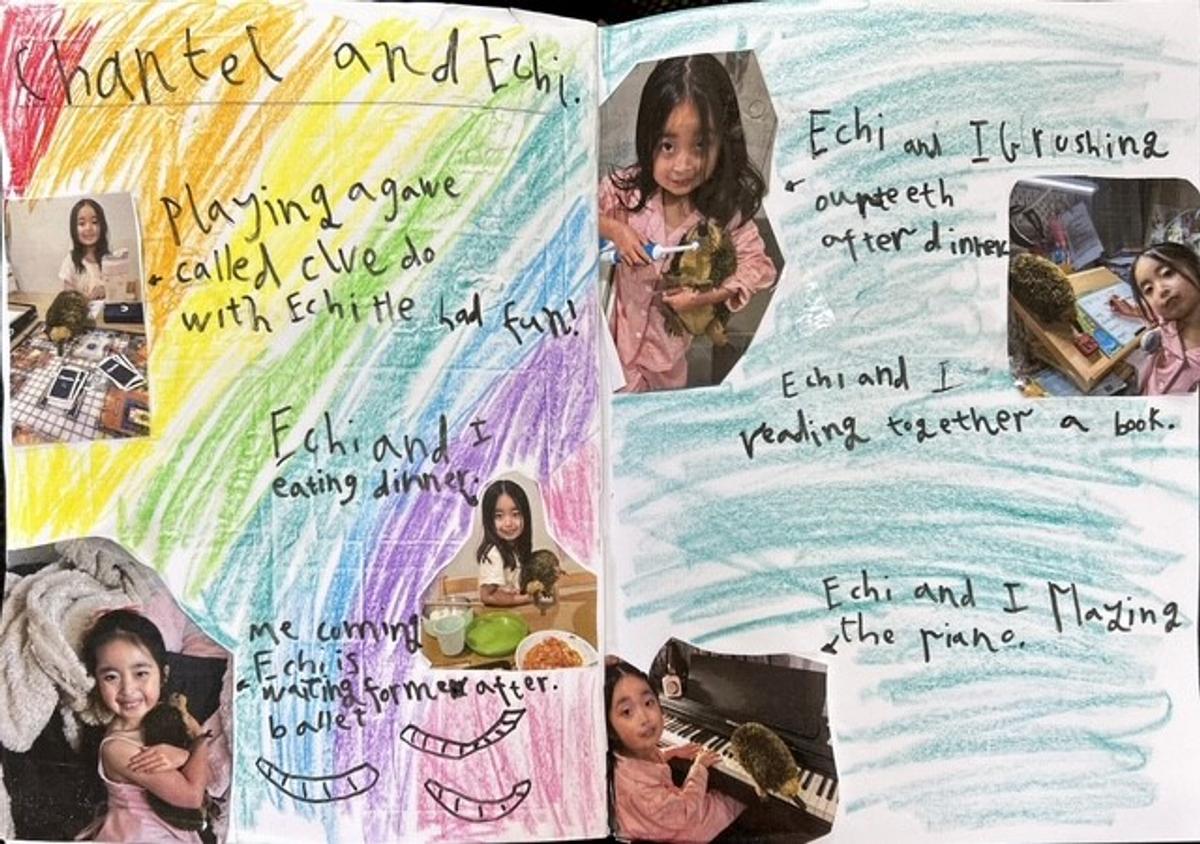 Chantel and Echi.
Playing a game
called clue do
with Echi He had fun!
Echi and I
eating dinner.
me coming
Echi is
waiting for me after.
ballet
Echi and I brushing
our teeth
after dinner
Echi and I
reading together a book.
Echi and I Playing
the piano.